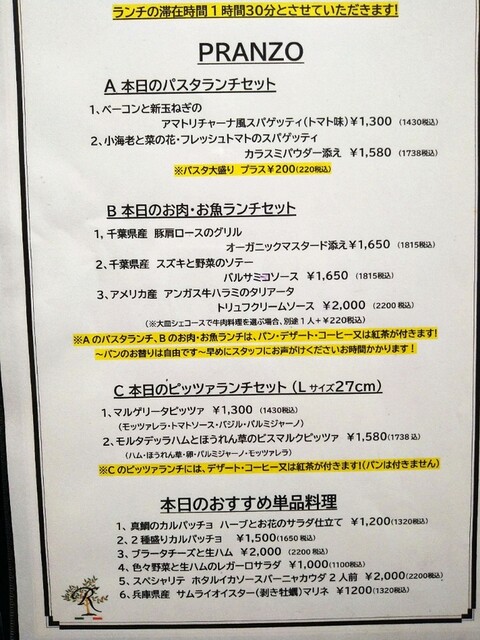 ランチの滞在時間１時間30分とさせていただきます!
PRANZO
A 本日のパスタランチセット
1、ベーコンと新玉ねぎの
アマトリチャーナ風スパゲッティ(トマト味) ¥1,300 (1430税込)
2、小海老と菜の花・フレッシュトマトのスパゲッティ
カラスミパウダー添え ¥1,580 (1738税込)
※パスタ大盛り プラス¥200(220税込)
B 本日のお肉・お魚ランチセット
1、千葉県産 豚肩ロースのグリル
オーガニックマスタード添え ¥1,650 (1815税込)
2、千葉県産 スズキと野菜のソテー
バルサミコソース ¥1,650 (1815税込)
3、アメリカ産 アンガス牛ハラミのタリアータ
トリュフクリームソース ¥2,000 (2200 税込)
(※大皿シェコースで牛肉料理を選ぶ場合、別途１人+¥220税込)
※Aのパスタランチ、Bのお肉・お魚ランチは、パン・デザート・コーヒー又は紅茶が付きます!
～パンのお替りは自由です～早めにスタッフにお声がけくださいお時間かかります！
C 本日のピッツァランチセット (Lサイズ27cm)
1、マルゲリータピッツァ ¥1,300 (1430税込)
(モッツァレラ・トマトソース・バジル・パルミジャーノ)
2、モルタデッラハムとほうれん草のビスマルクピッツァ ¥1,580(1738 込)
(ハム・ほうれん草・卵・パルミジャーノ・モッツァレラ)
※Cのピッツァランチには、デザート・コーヒー又は紅茶が付きます!(パンは付きません)
本日のおすすめ単品料理
1、真鯛のカルパッチョ ハーブとお花のサラダ仕立て ¥1,200(1320税込)
2、２種盛りカルパッチョ ¥1,500(1650 税込)
3、ブラータチーズと生ハム ¥2,000 (2200 税込)
4、色々野菜と生ハムのレガーロサラダ ¥1,000(1100税込)
5、スペシャリテ ホタルイカソースバーニャカウダ２人前 ¥2,000(2200税込)
6、兵庫県産 サムライオイスター(剥き牡蠣)マリネ ¥1200(1320税込)
R